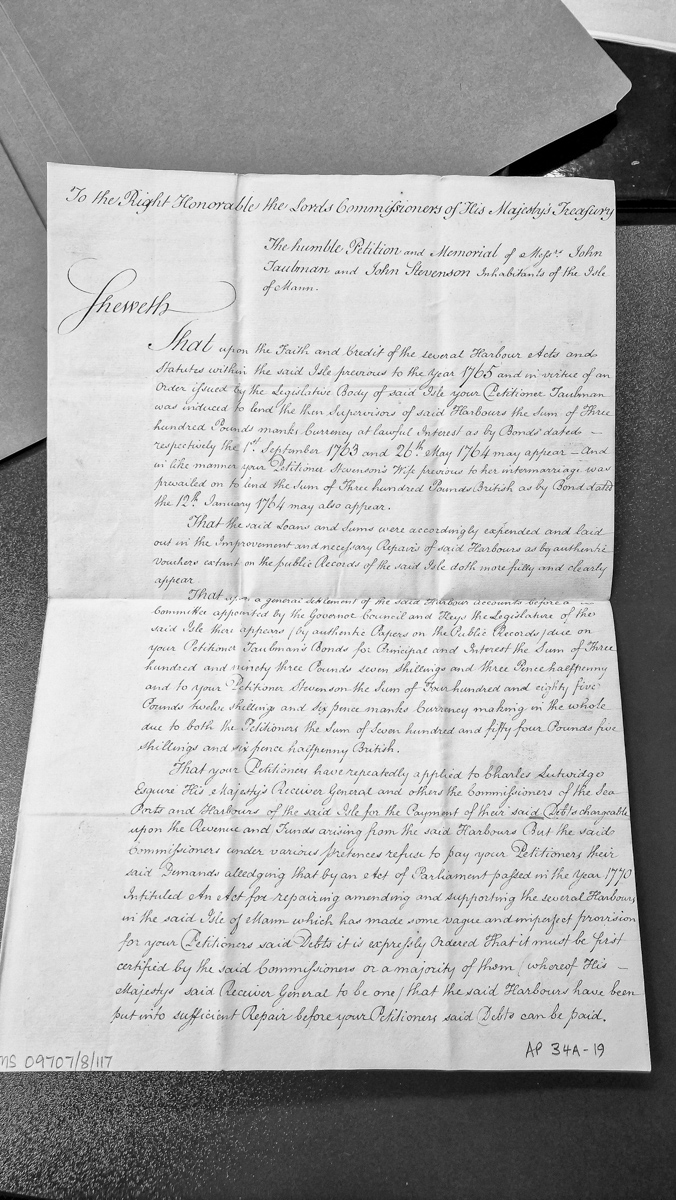 To the Right Honorable the Lords Commissioners of His Majesty's Treasury
The humble Petition and Memorial of Mess.rs John
Taubman and John Stevenson Inhabitants of the Isle
of Mann.
Sheweth
That upon the Faith and Credit of the several Harbour Acts and
Statutes within the said Isle previous to the Year 1765 and in virtue of an
Order issued by the Legislative Body of said Isle your Petitioner Taubman
was induced to lend the then Supervisors of said Harbours the Sum of Three
hundred Pounds manks Currency at lawful Interest as by Bonds dated —
respectively the 1st. September 1763 and 26th. May 1764 may appear — And
in like manner your Petitioner Stevenson's Wife previous to her intermarriage was
prevailed on to lend the Sum of Three hundred Pounds British as by Bond dated
the 12th. January 1764 may also appear.
That the said Loans and Sums were accordingly expended and laid
out in the Improvement and necessary Repairs of said Harbours as by authentic
vouchers extant on the public Records of the said Isle doth more fully and clearly
appear
That upon a general Settlement of the said Harbour accounts before a —
Committee appointed by the Governor Council and Keys the Legislature of the
said Isle there appears (by authentic Papers on the Public Records) due on
your Petitioner Taubman's Bonds for Principal and Interest the Sum of Three
hundred and ninety three Pounds seven Shillings and three Pence halfpenny
and to your Petitioner Stevenson the Sum of Four hundred and eighty five
Pounds twelve shillings and six pence manks Currency making in the whole
due to both the Petitioners the Sum of Seven hundred and fifty four Pounds five
shillings and six pence halfpenny British.
That your Petitioners have repeatedly applied to Charles Lutwidge
Esquire His Majesty's Receiver General and others the Commissioners of the Sea
Ports and Harbours of the said Isle for the Payment of their said Debts chargeable
upon the Revenue and Funds arising from the said Harbours But the said
Commissioners under various pretences refuse to pay your Petitioners their
said Demands alledging that by an Act of Parliament passed in the Year 1770
Intituled An Act for repairing amending and supporting the several Harbours
in the said Isle of Mann which has made some vague and imperfect provision
for your Petitioners said Debts it is expressly Ordered That it must be first
certified by the said Commissioners or a majority of them (whereof His —
Majestys said Receiver General to be one) that the said Harbours have been
put into sufficient Repair before your Petitioners said Debts can be paid.
MS 09707/8/117
AP 34A-19